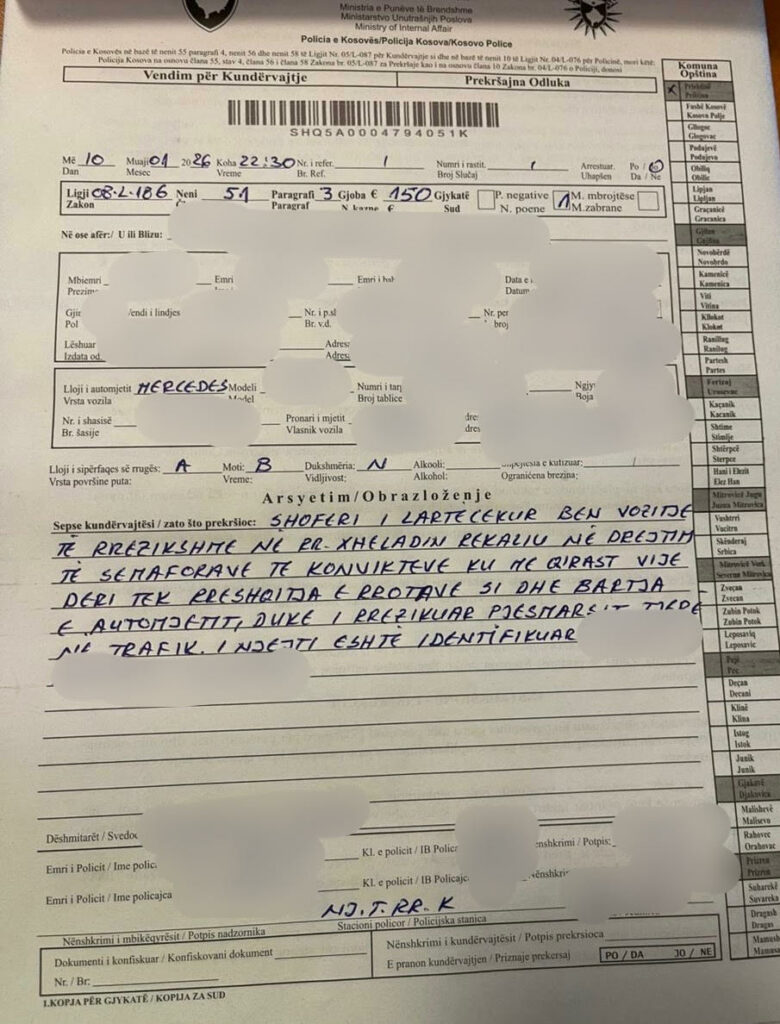 Ministria e Punëve të Brendshme
Ministarstvo Unutrašnjih Poslova
Ministry of Internal Affair
Policia e Kosovës/Policija Kosova/Kosovo Police
Policia e Kosovës në bazë të nenit 55 paragrafi 4, nenit 56 dhe nenit 58 të Ligjit Nr. 05/L-087 për Kundërvajtje si dhe në bazë të nenit 10 të Ligjit Nr. 04/L-076 për Policinë, mori këtë:
Policija Kosova na osnovu člana 55, stav 4, člana 56 i člana 58 Zakona br. 05/L-087 za Prekršaje kao i na osnovu člana 10 Zakona br. 04/L-076 o Policiji, donosi
Vendim për Kundërvajtje Prekršajna Odluka
SHQ5A0004794051K
Më 10 Muaji 01 2026 Koha 22:30 Nr. i refer. / Numri i rastit. / Arrestuar. Po / Jo
Dan Mesec Vreme Br. Ref. Broj Slučaj Uhapšen Da / Ne
Ligji 08-L-186 Neni 51 Paragrafi 3 Gjoba € 150 Gjykatë P. negative 1 M. mbrojtëse
Zakon Paragraf € Sud N. poene M.zabrane
Në ose afër:/ U ili Blizu:
Mbiemri Emri Emri i Data e
Prezime Datum
Gjin Vendi i lindjes Nr. i Nr. per
Pol Br. v.d. broj
Lëshuar Adresa
Izdata od. Adresa
Lloji i automjetit MERCEDES Modeli Numri i targ Ngjy
Vrsta vozila Model Broj tablice Boja
Nr. i shasisë Pronari i mjetit dres
Br. šasije Vlasnik vozila dres
Lloji i sipërfaqes së rrugës: A Moti: B Dukshmëria: N Alkooli: e kufizuar: /
Vrsta površine puta: Vreme: Vidljivost: Alkohol: Ograničena brezina:
Arsyetim/Obrazloženje
Sepse kundërvajtësi / zato što prekršioc: SHOFERI I LARTECEKUR BEN VOZITJE
TË RREZIKSHME NE RR. XHELADIN REKALIU NË DREJTIM
TË SEMAFORAVE TË KONVIKTEVE KU ME QIRAST VIJE
DERI TEK RRESHQITJA E RROTAVE SI DHE BARTJA
E AUTOMJETIT, DUKE I RREZIKUAR
NË TRAFIK. I NJEJTI ESHTË IDENTIFIKUAR
Dëshmitarët / Svedoc
Emri i Policit / Ime polic. Kl. e policit / IB Policaj nshkrimi / Potpis:
Emri i Policit / Ime policajca Kl. e policit / IB Policajc nënshkri
NJ.T.RR.K
Nënshkrimi i mbikëqyrësit / Potpis nadzornika Stacioni policor / Policijska stanica
Dokumenti i konfiskuar / Konfiskovani dokument Nënshkrimi i kundërvajtësit / Potpis prekrsioca
Nr. / Br: E pranon kundërvajtjen / Priznaje prekersaj PO / DA JO / NE
1.KOPJA PËR GJYKATË / KOPIJA ZA SUD
Komuna
Opština
X Prishtinë
Priština
Fushë Kosovë
Kosova Polje
Gllogoc
Glogovac
Podujevë
Podujeva
Obiliq
Obilic
Lipjan
Lipljan
Graçanicë
Gracanica
Gjilan
Gnjilane
Novobërdë
Novobrdo
Kamenicë
Kamenica
Viti
Vitina
Kllokot
Klokot
Ranillug
Ranilug
Partesh
Partes
Ferizaj
Urosevac
Kaçanik
Kacanik
Shtime
Stimlje
Shtërpcë
Sterpce
Hani i Elezit
Elez Han
Mitrovicë Jugu
Juzna Mitrovica
Vushtrri
Vucitrn
Skënderaj
Srbica
Mitrovicë Veri
Severna Mitrovica
Zveçan
Zvecan
Zubin Potok
Zubin Potok
Leposaviq
Leposavic
Pejë
Pec
Deçan
Decani
Klinë
Klina
Istog
Istok
Junik
Junik
Gjakovë
Djakovica
Malishevë
Malisevo
Rahovec
Orahovac
Prizren
Prizren
Suharekë
Suvareka
Dragash
Dragas
Mamush
Mamusa